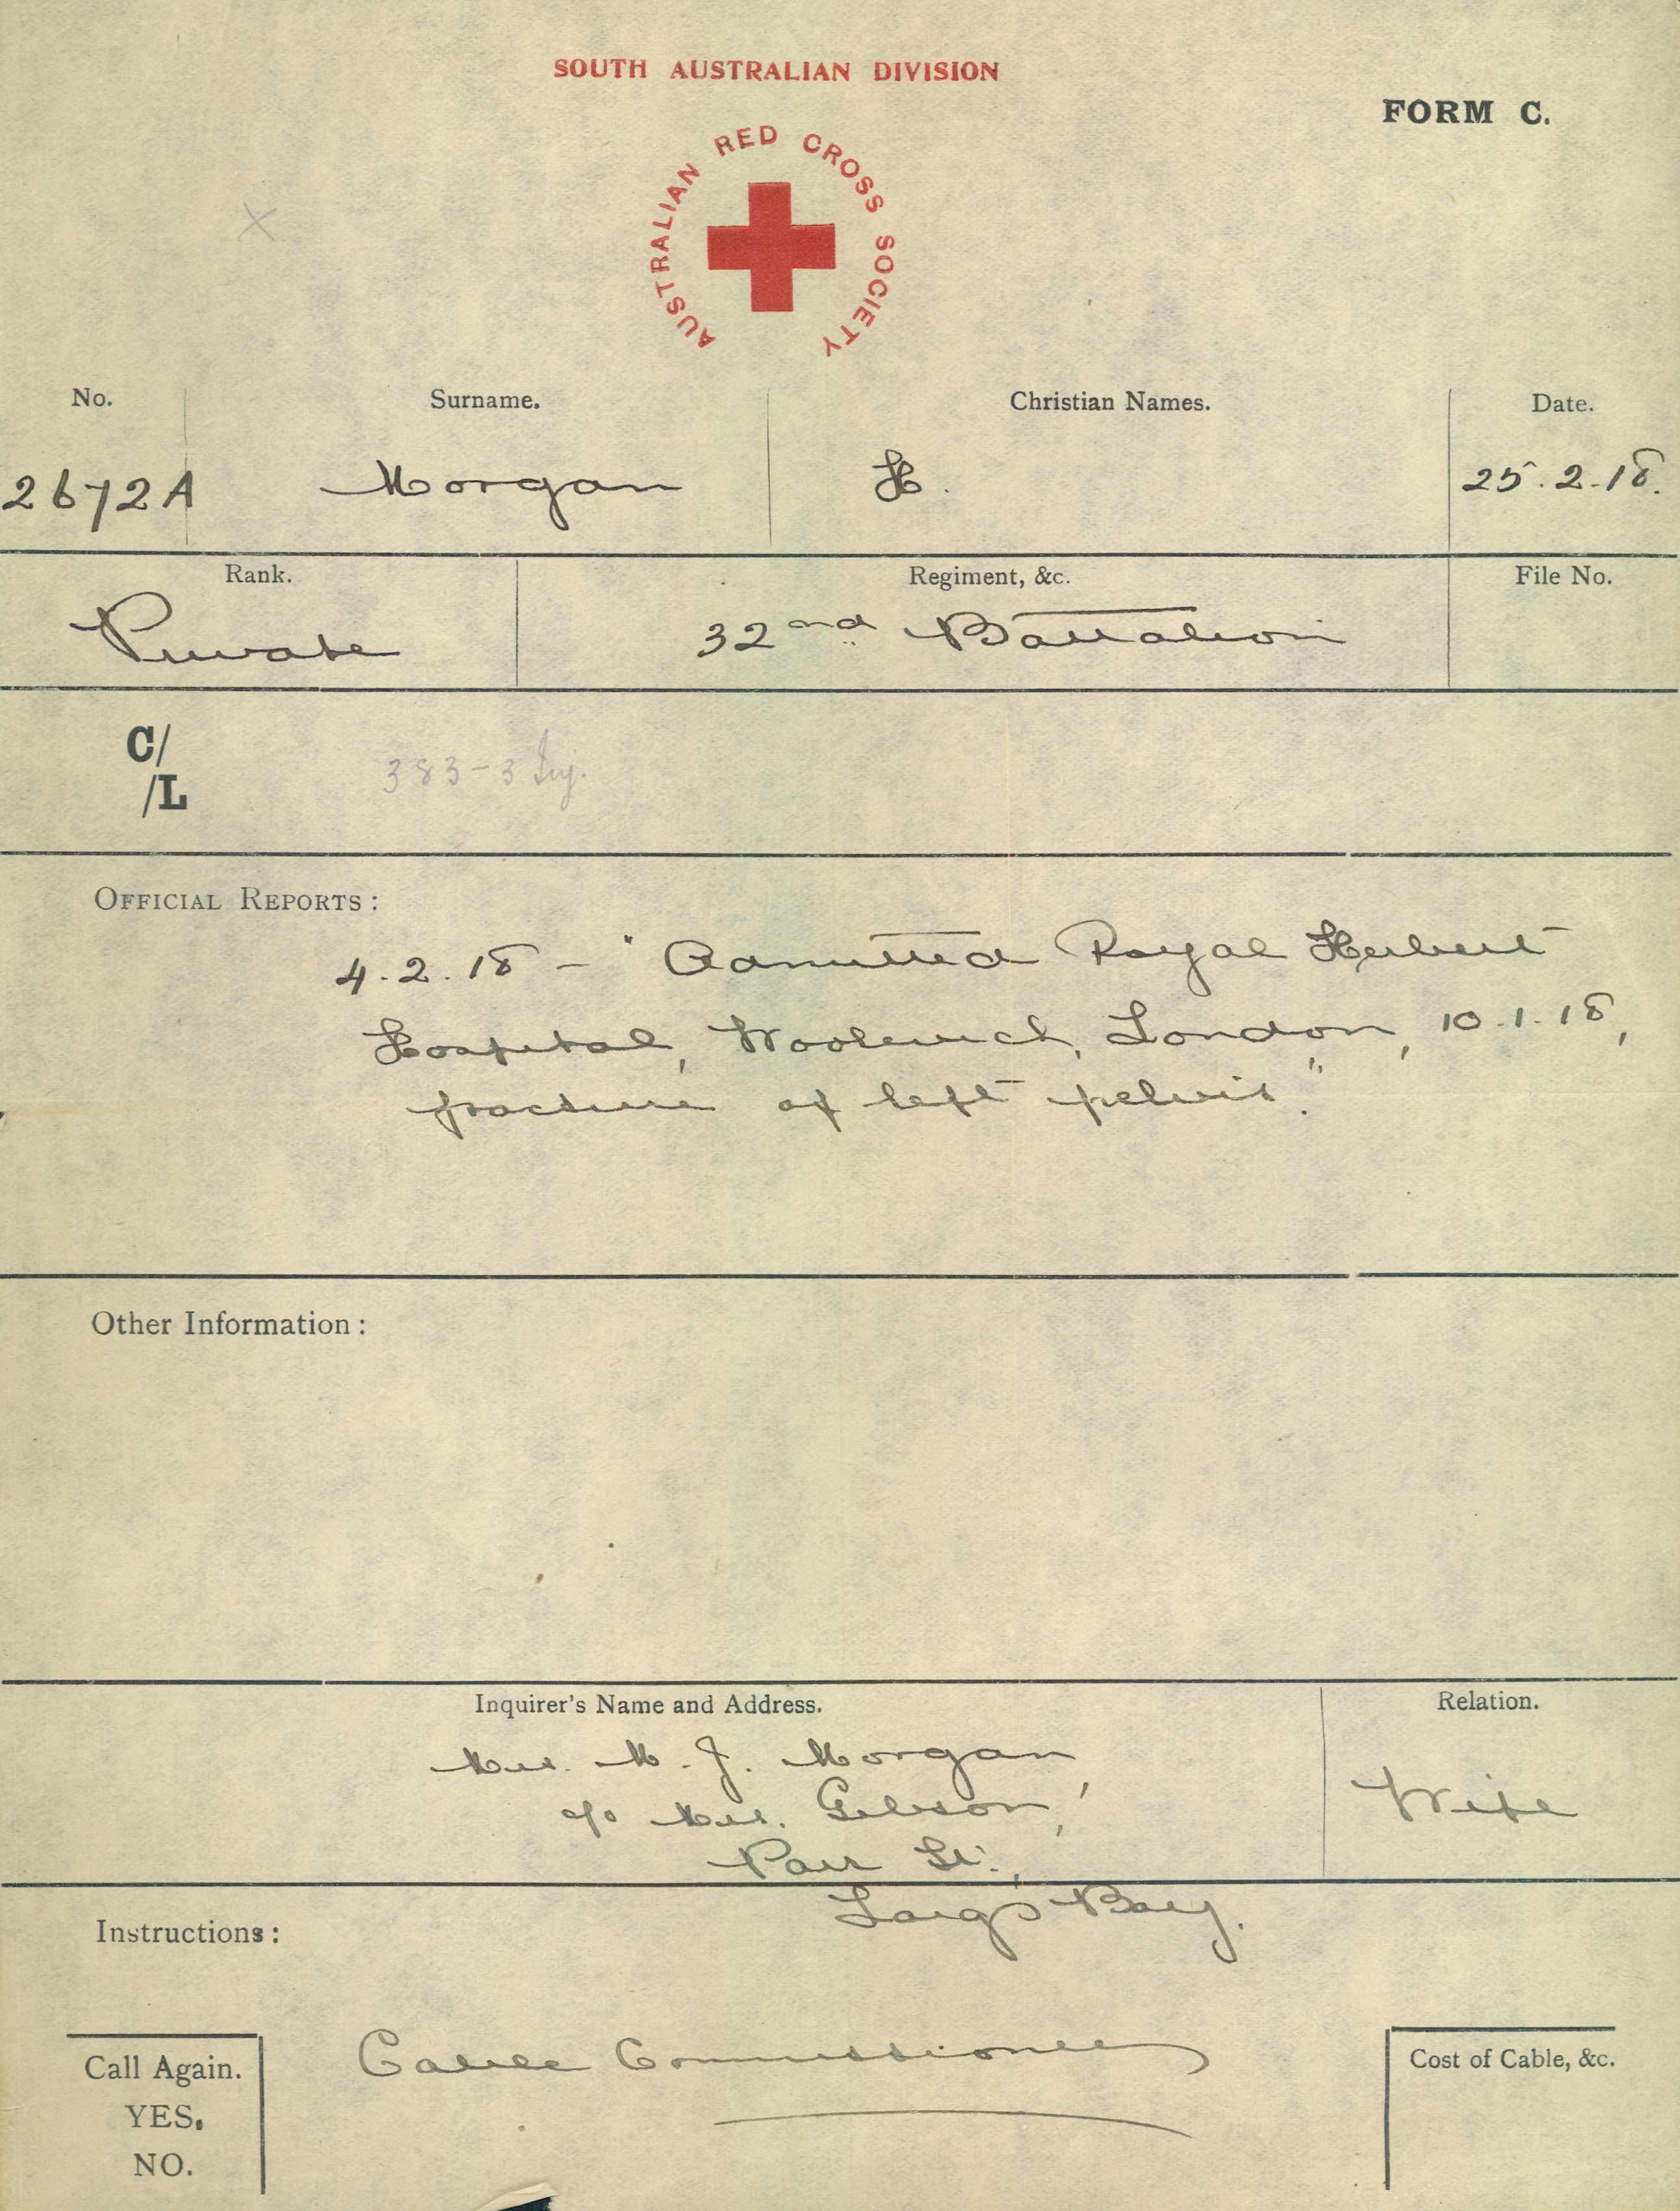 SOUTH AUSTRALIAN DIVISION
FORM C.
AUSTRALIAN RED CROSS SOCIETY
No. Surname. Christian Names. Date.
2672A Morgan H. 25.2.18.
Rank. Regiment, &c. File No.
Private 32nd Battalion
C/
/L
383-3
OFFICIAL REPORTS:
4.2.18 - "Admitted Royal Herbert
Hospital, Woolwich, London, 10.1.18,
fracture of left pelvis."
Other Information:
Inquirer's Name and Address. Relation.
Mrs. M. J. Morgan,
c/o Mrs. Gibson, Wife
Parr St.,
Largs Bay.
Instructions:
Cable Commissioner
Call Again. Cost of Cable, &c.
YES.
NO.